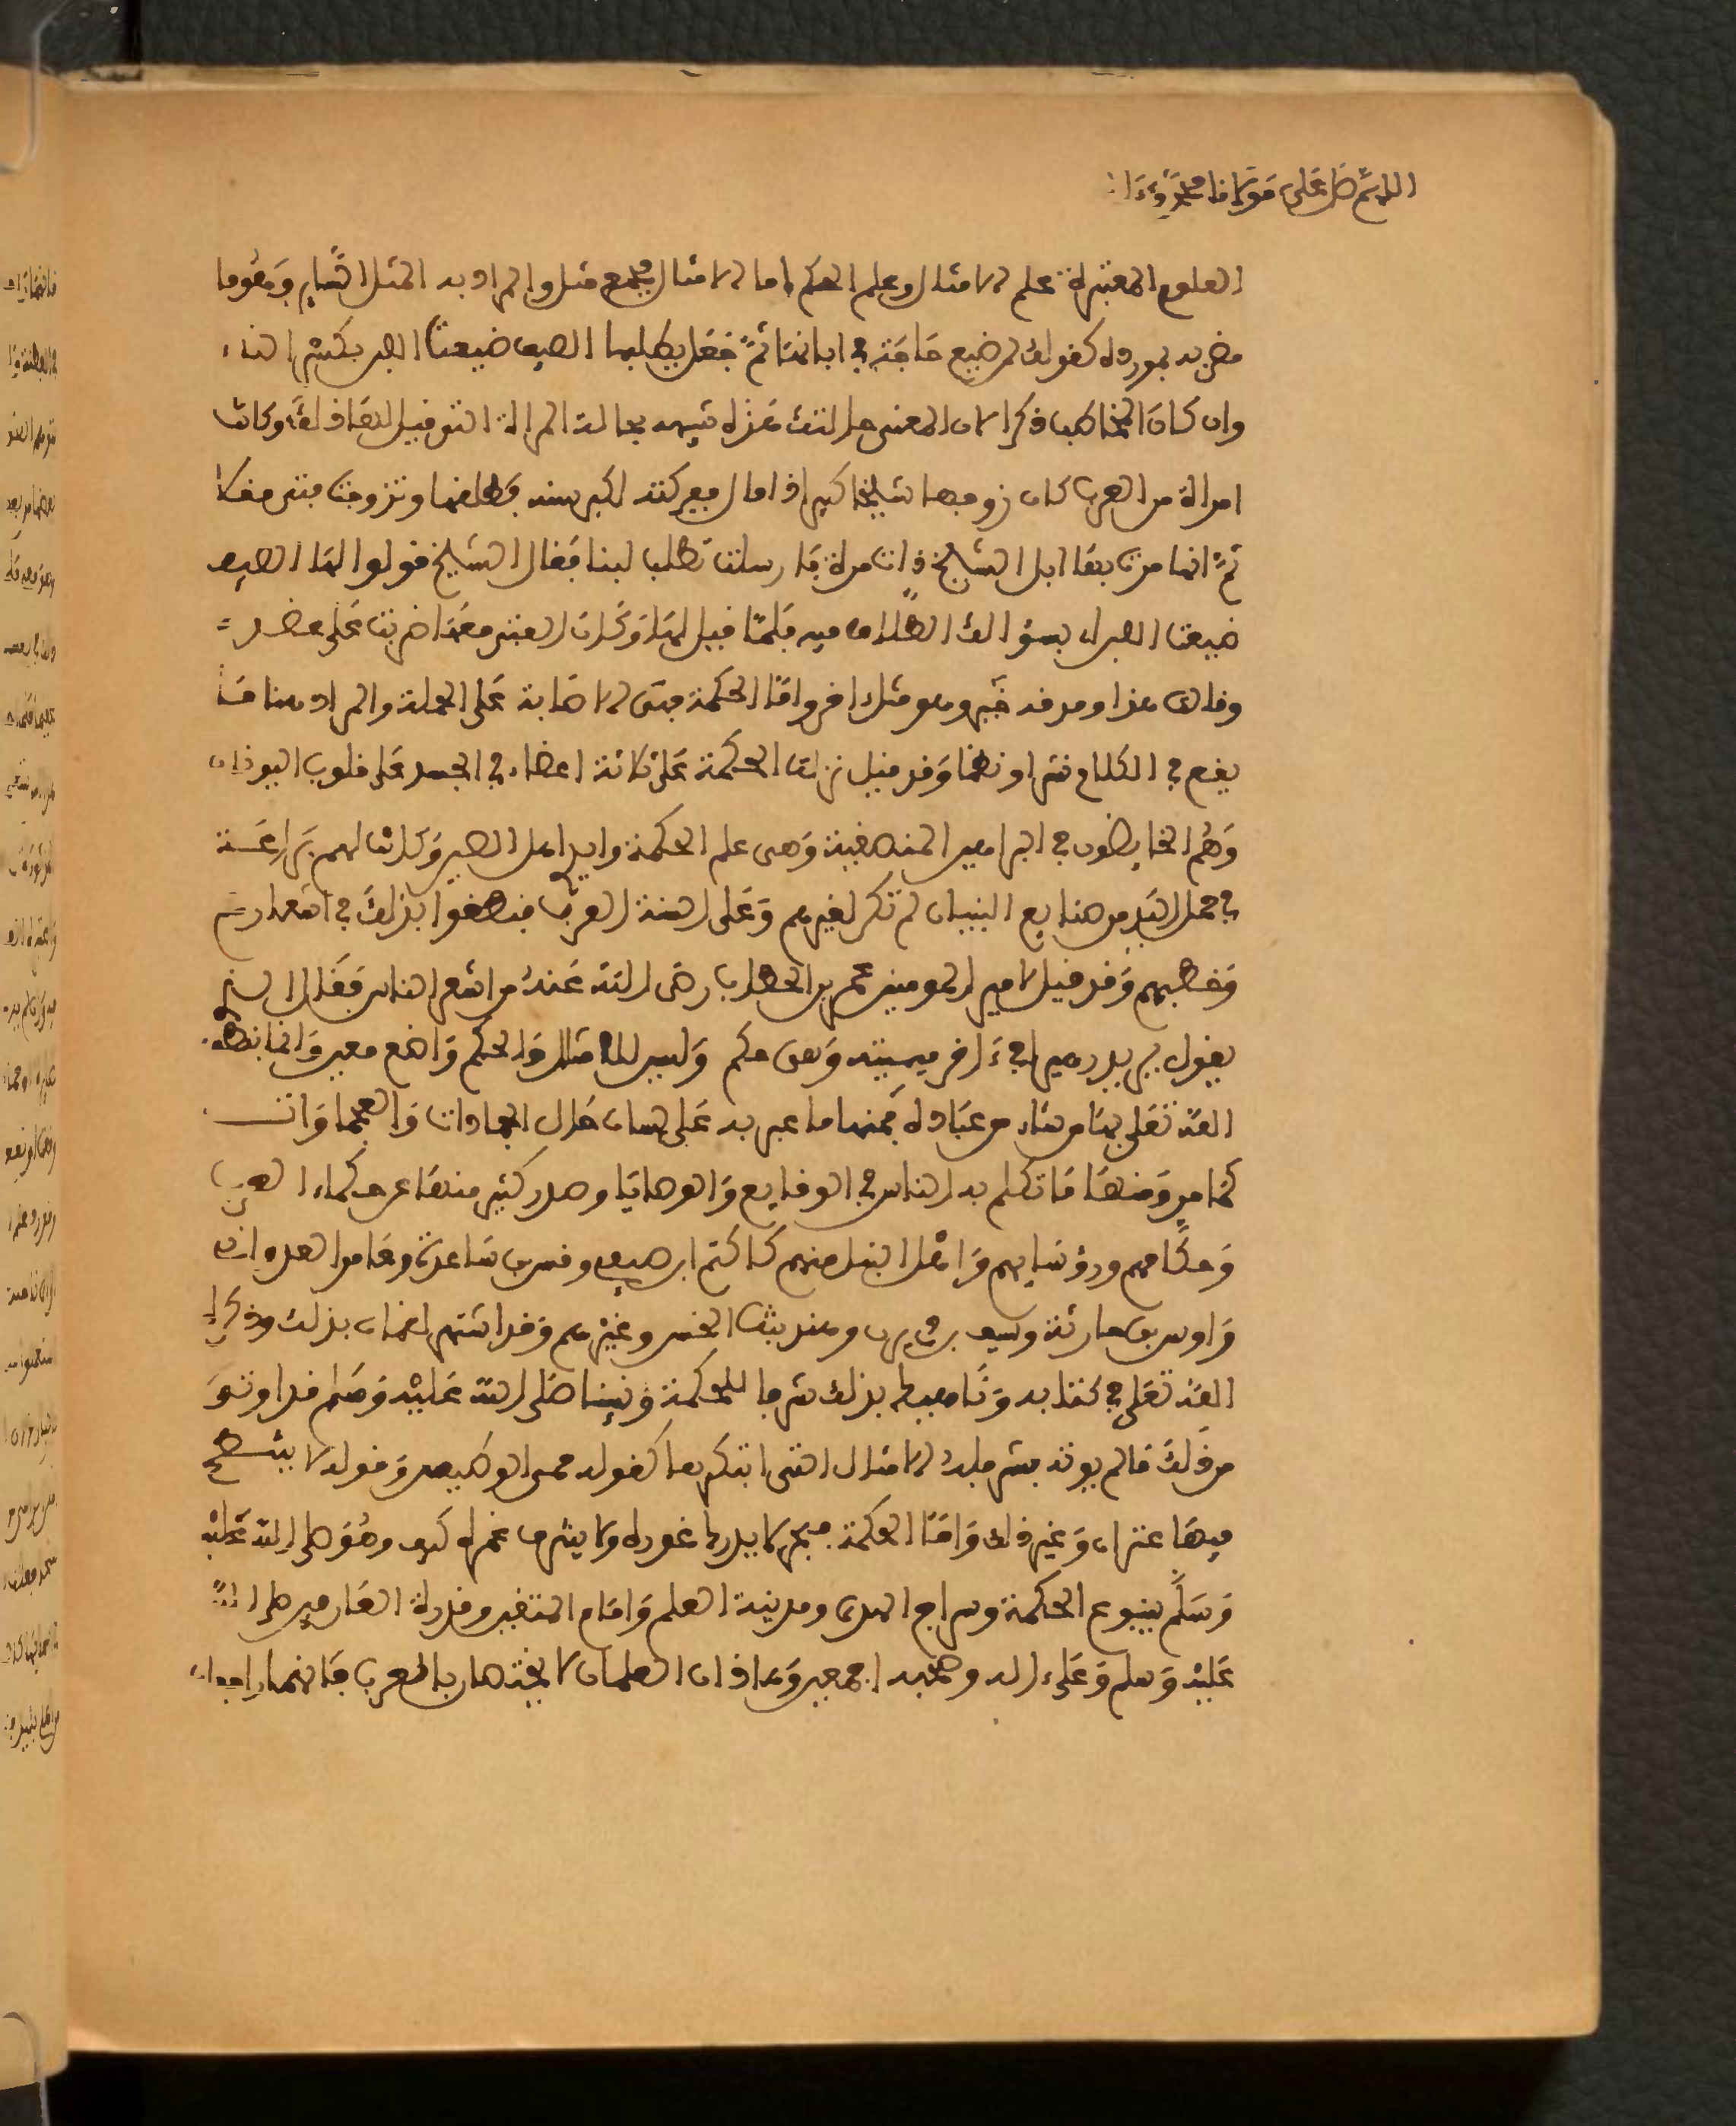 اللهم صل على مولانا محمد وءا
العلوم المعتبرة علم الامثال وعلم الحكم اما الامثال فجمع مثل والمراد به المثل الساير وهو ما
مضربه بمورده كقولك لمن ضيع حاجته في ابانها ثم جعل يطلبها الصيف ضيعت اللبن بكسر التاء
وان كان المخاطب ذكرا لان المعنى حالتك هذه تشبه بحالة المراة التي قيل لها ذلك وكانت
امراة من العرب كان زوجها شيخا كبيرا ذا مال ففركته لكبر سنه فطلقها وتزوجت فتى مقلا
ثم انها مرت بها ابل الشيخ ذات مرة فارسلت تطلب لبنا فقال الشيخ قولوا لها الصيف
ضيعت اللبن بسؤالك الطلاق فيه فلما قيل لها وكان الفتى معها ضربت على عضده
وقالت هذا ومدقه خير وهو مثل اخر واما الحكمة فهي الاصابة على الجملة والمراد هنا ما
يقع في الكلام نثرا ونظما وقد قيل نزلت الحكمة على ثلاثة اعضاء في الجسد على قلوب اليونان
وهم الخايضون في البراهين المنطقية وهي علم الحكمة وايدي اهل الصين وكانت لهم براعة
في عمل اليد من صنايع البنيان لم تكن لغيرهم وعلى السنة العرب فنطقوا بذلك في اشعارهم
وخطبهم وقد قيل لامير المومنين عمر بن الخطاب رضي الله عنه من اشعر الناس فقال الذي
يقول يريد زهيرا في ءاخر ميميته وهي حكم وليس للامثال والحكم واضع معين وانما ينطق
الله تعلى بها من شاء من عباده فمنها ما عبر به على لسان حال الجمادات والعجماوات
كما مر ومنها ما تكلم به الناس في الوقايع والوصايا وصدر كثير منها عن حكماء العرب
وحكامهم ورؤسايهم واهل النبل منهم كاكثم ابن صيفي وقس بن ساعدة وعامر العدواني
واوس بن حارثة وسيف بن ذي يزن وهند بنت الخس وغيرهم وقد اشتهر لقمان بذلك وذكره
الله تعلى في كتابه وناهيك بذلك شرفا للحكمة ونبينا صلى الله عليه وسلم قد اوتي
من ذلك ما لم يوته بشر فله الامثال التي ابتكرها كقوله حمي الوطيس وقوله لا ينتطح
فيها عنزان وغير ذلك واما الحكمة فبحر لا يدرك غوره ولا ينزف غمره كيف وهو صلى الله عليه
وسلم ينبوع الحكمة وسراج الهدى ومدينة العلم وامام المتقين وقدوة العارفين صلى الله
عليه وسلم وعلى ءاله وصحبه اجمعين وهاذان العلمان لا يختصان بالعرب فانهما راجعان